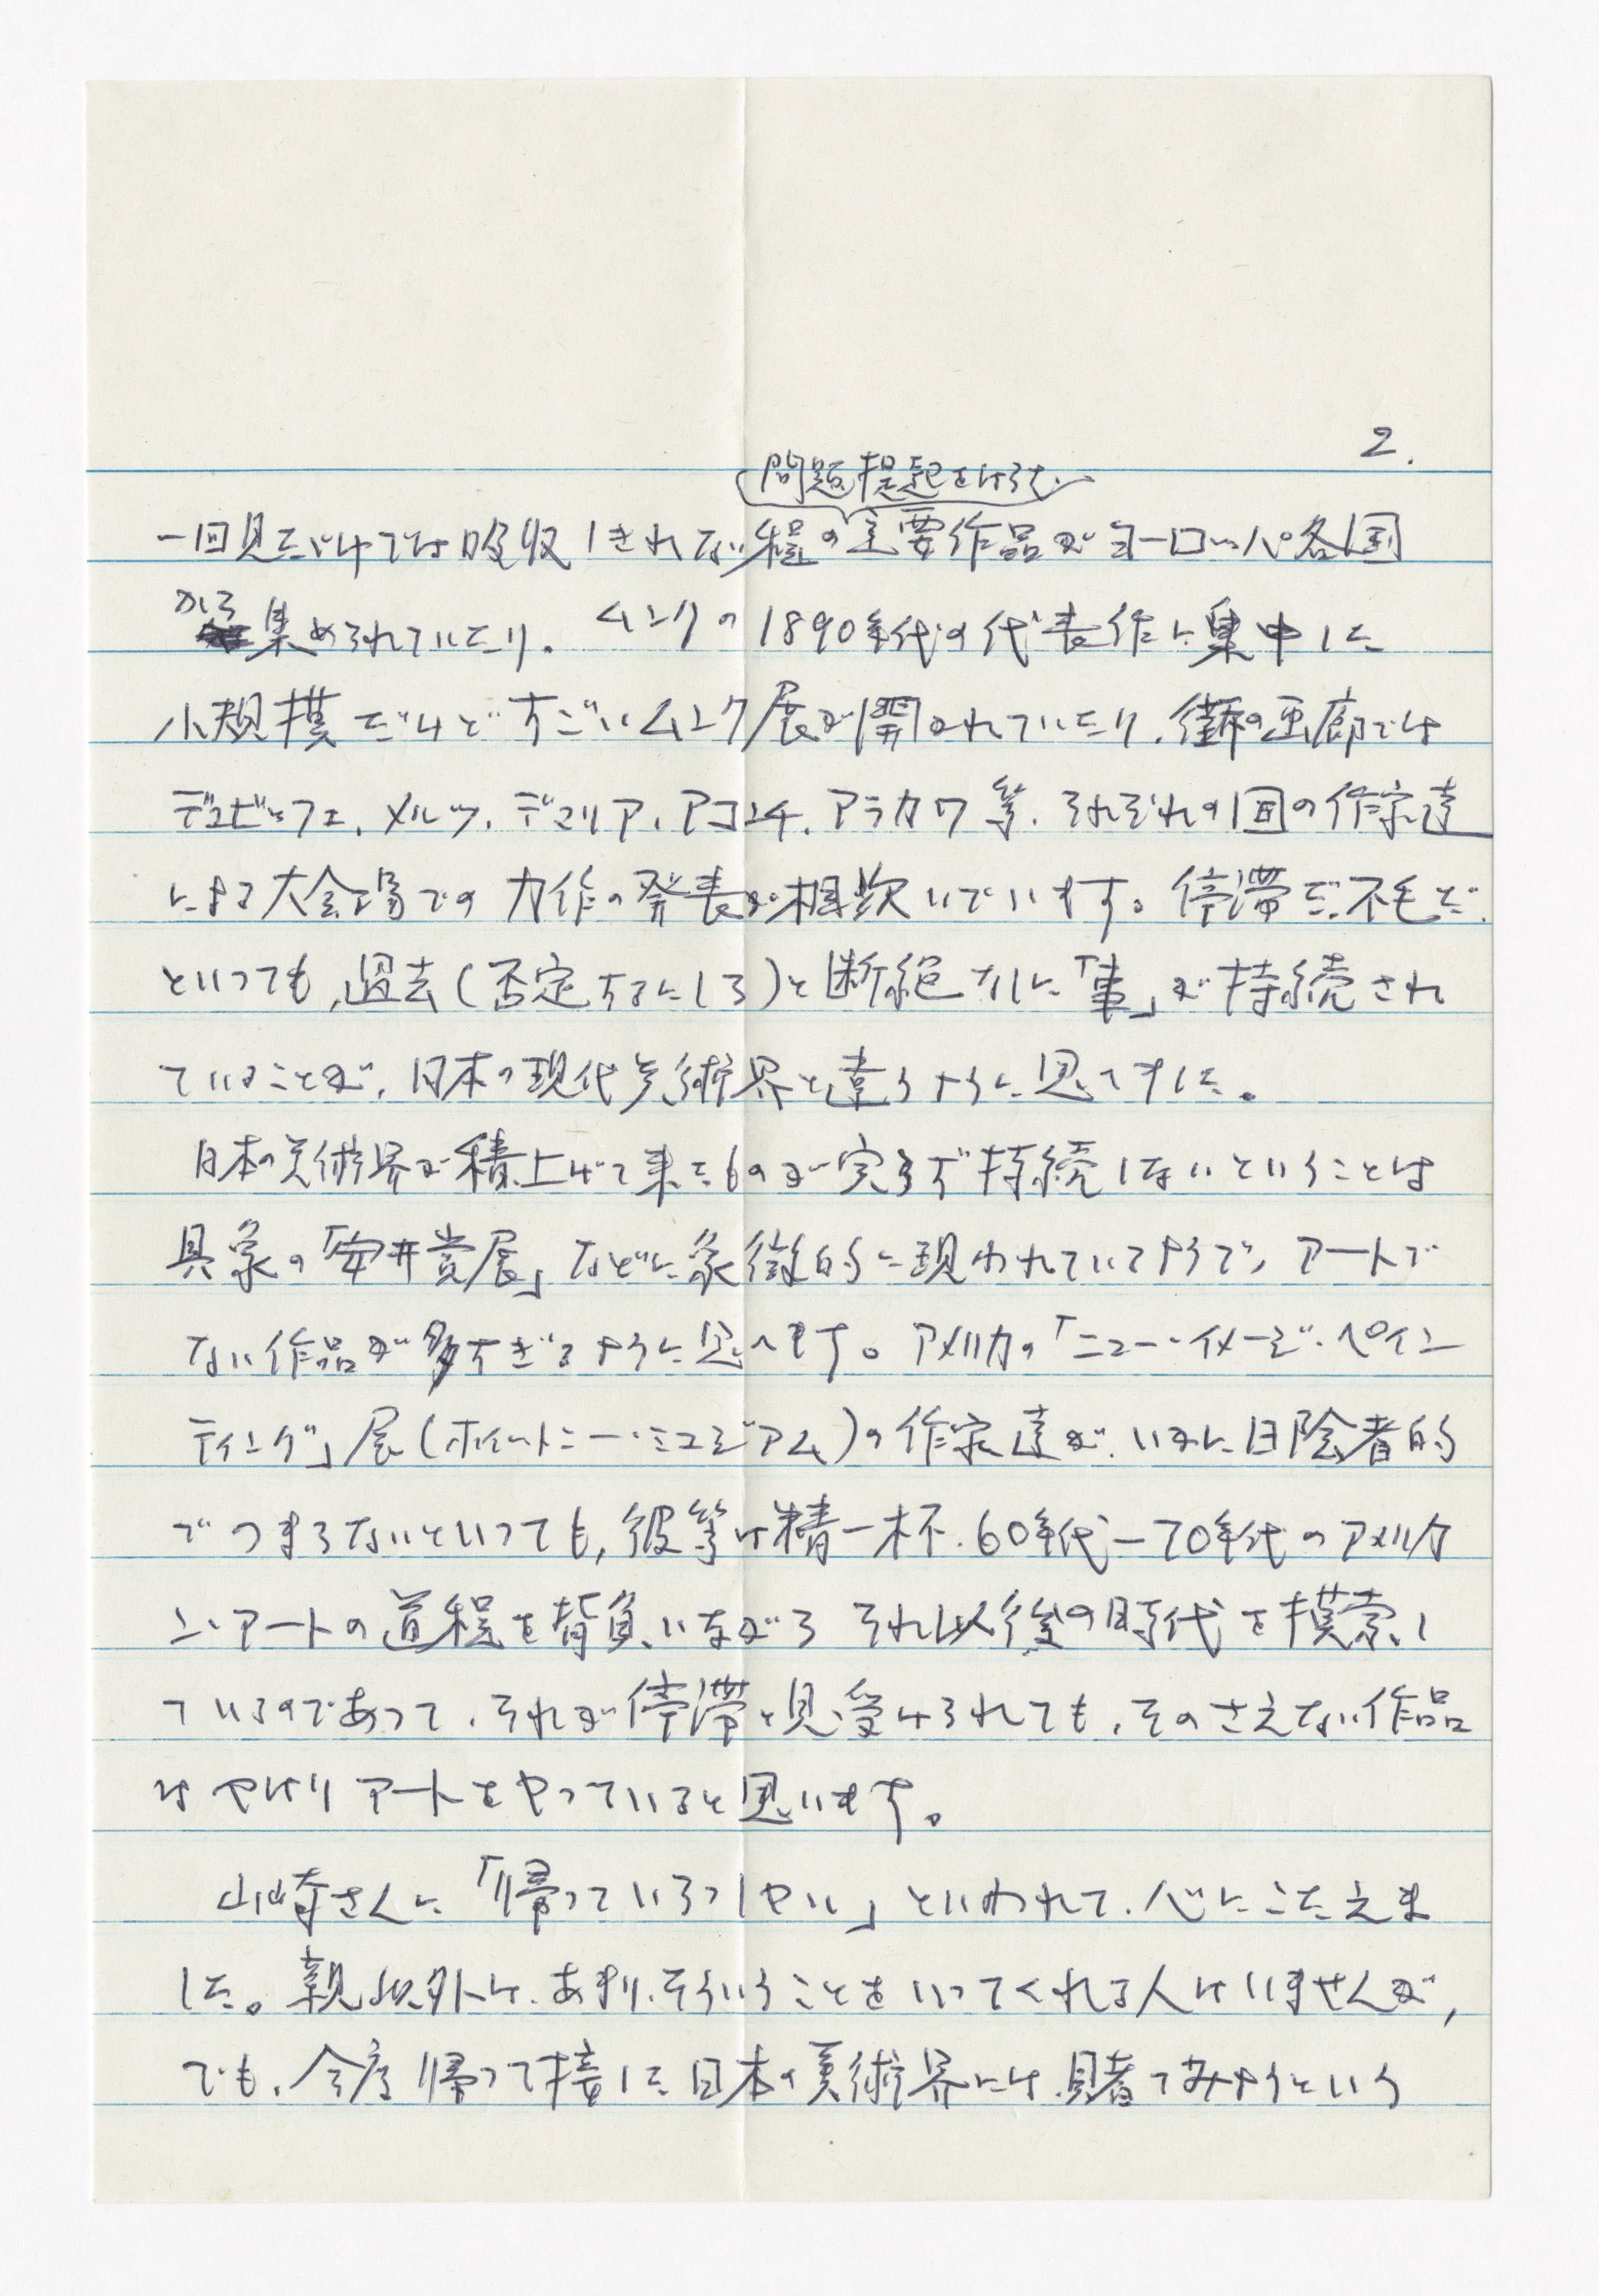 2.
問題提起をはらむ
一回見ただけでは吸収しきれない程の主要作品がヨーロッパ各国
から集められていたり。ムンクの1890年代の代表作に集中した
小規模だけどすごいムンク展が開かれていたり、街の画廊では
デュビッフェ、メルツ、デマリア、アコンチ、アラカワ等、それぞれの国の作家達
による大会場での力作の発表が相次いでいます。停滞だ、不毛だ、
といっても、過去(否定するにしろ)と断絶なしに「事」が持続され
ていることが、日本の現代美術界と違うように思えました。
日本の美術界が積上げて来たものが完全に持続しないということは
具象の「安井賞展」などに象徴的に現われているようで、アートで
ない作品が多すぎるように思へます。アメリカの「ニュー・イメージ・ペイン
ティング」展(ホイットニー・ミュジアム)の作家達が、いかに日陰者的
でつまらないといっても、彼等は精一杯、60年代―70年代のアメリカ
ン・アートの道程を背負いながら それ以後の時代を模索し
ているのであって、それが停滞と見受けられても、そのさえない作品
はやはりアートをやっていると思います。
山崎さんに「帰っていらっしゃい」といわれて、心にこたえま
した。親以外は、あまり、そういうことをいってくれる人はいませんが、
でも、今度帰って接した日本の美術界には、賭てみようという